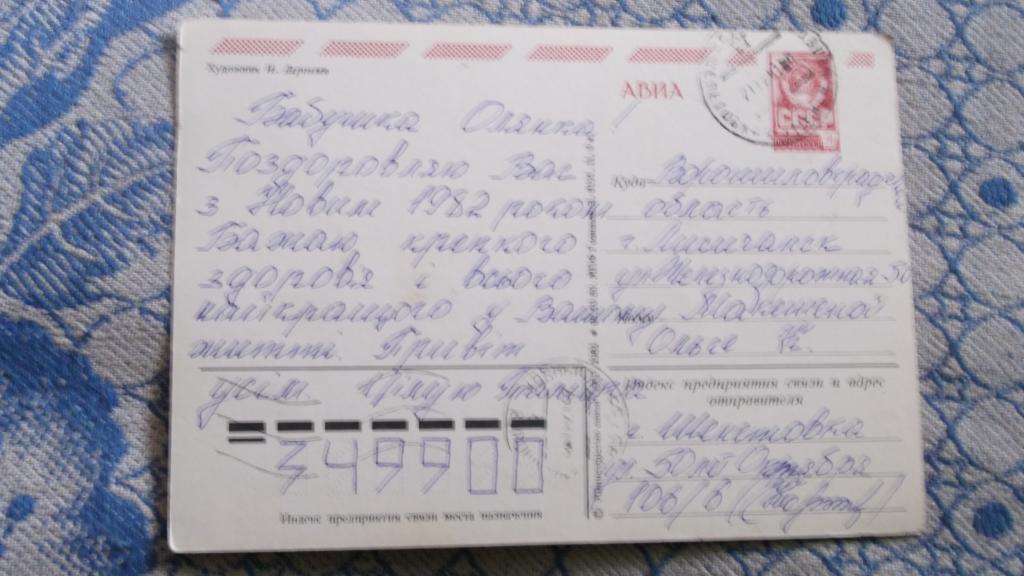 Художник И. Дергилев
АВИА
СССР
Бабушка Олянка!
Поздоровляю Вас
з Новим 1982 роком
Бажаю крепкого
здоров'я і всього
найкращого у Вашому
житті. Привіт
усім. Цілую
Куда Ворошиловградская
область
г. Лисичанск
ул. Железнодорожная 50
Кому
Ольге
Индекс предприятия связи и адрес
отправителя
г. Шепетовка
ул. 50 лет Октября
106/6
349900
Индекс предприятия связи места назначения